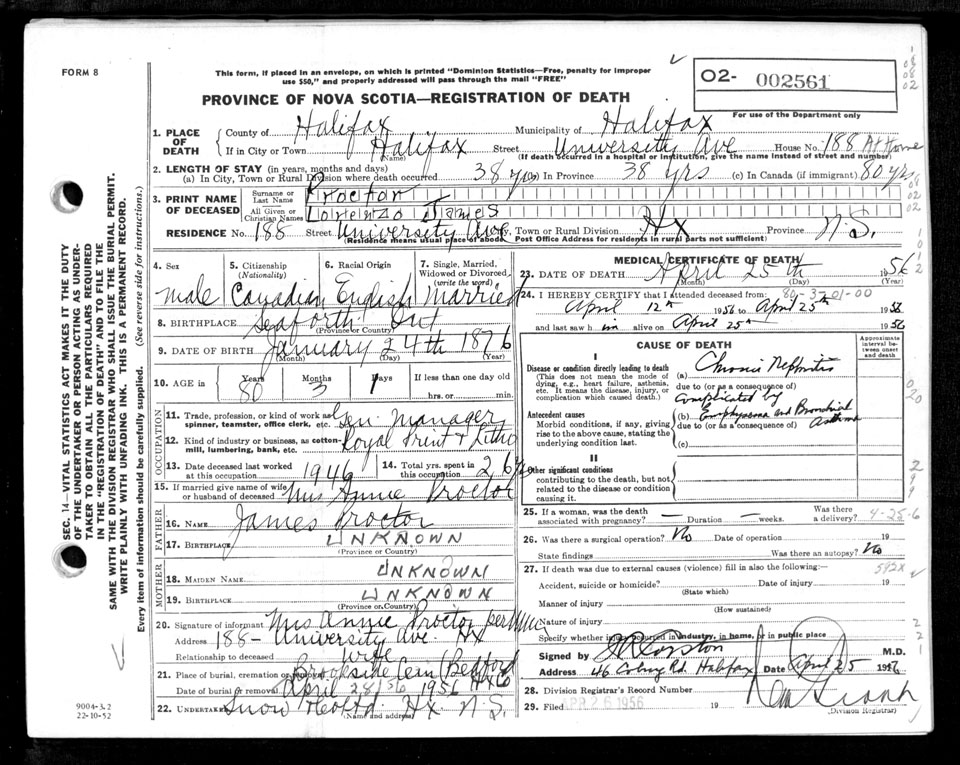 FORM 8
This form, if placed in an envelope, on which is printed "Dominion Statistics—Free, penalty for improper
use $50," and properly addressed will pass through the mail "FREE"
O2- 002561
For use of the Department only
PROVINCE OF NOVA SCOTIA—REGISTRATION OF DEATH
1. PLACE OF DEATH { County of Halifax Municipality of Halifax
If in City or Town Halifax Street University Ave House No. 188 At Home
(Name) (If death occurred in a hospital or institution, give the name instead of street and number)
2. LENGTH OF STAY (in years, months and days)
(a) In City, Town or Rural Division where death occurred 38 yrs (b) In Province 38 yrs (c) In Canada (if immigrant) 80 yrs
3. PRINT NAME OF DECEASED { Surname or Last Name Proctor
All Given or Christian Names Lorenzo James
RESIDENCE No. 188 Street University Ave City, Town or Rural Division Hx Province N.S.
(Residence means usual place of abode. Post Office Address for residents in rural parts not sufficient)
4. Sex male
5. Citizenship (Nationality) Canadian
6. Racial Origin English
7. Single, Married, Widowed or Divorced (write the word) Married
8. BIRTHPLACE Seaforth Ont
(Province or Country)
9. DATE OF BIRTH January 24th 1876
(Month) (Day) (Year)
10. AGE in { Years 80 Months 3 Days 1 If less than one day old
hrs. or min.
OCCUPATION
11. Trade, profession, or kind of work as spinner, teamster, office clerk, etc. Gen Manager
12. Kind of industry or business, as cotton-mill, lumbering, bank, etc. Royal Print & Litho
13. Date deceased last worked at this occupation 1946
14. Total yrs. spent in this occupation 26 yrs
15. If married give name of wife or husband of deceased Mrs Annie Proctor
FATHER
16. NAME James Proctor
17. BIRTHPLACE UNKNOWN
(Province or Country)
MOTHER
18. MAIDEN NAME UNKNOWN
19. BIRTHPLACE UNKNOWN
(Province or Country)
20. Signature of informant Mrs Annie Proctor per
Address 188- University Ave. Hx
Relationship to deceased wife
21. Place of burial, cremation or removal Brookside Cem Bedford
Date of burial or removal April 28/56 1956 Hx Co
22. UNDERTAKER Snow & Co Ltd. Hx N.S.
(Name and address)
MEDICAL CERTIFICATE OF DEATH
23. DATE OF DEATH April 25th 1956
(Month) (Day) (Year)
80-3-01-00
24. I HEREBY CERTIFY that I attended deceased from:
April 12th 1956 to April 25th 1956
and last saw him alive on April 25th 1956
CAUSE OF DEATH
Approximate interval between onset and death
I
Disease or condition directly leading to death (a) Chronic Nephritis
(This does not mean the mode of dying, e.g., heart failure, asthenia, etc. It means the disease, injury, or complication which caused death.)
due to (or as a consequence of)
Complicated by
Antecedent causes (b) Emphysema and Bronchial Asthma
Morbid conditions, if any, giving rise to the above cause, stating the underlying condition last.
due to (or as a consequence of)
(c)
II
Other significant conditions
contributing to the death, but not related to the disease or condition causing it.
25. If a woman, was the death associated with pregnancy? — Duration — weeks. Was there a delivery? 4-25-6
26. Was there a surgical operation? No Date of operation 19
State findings Was there an autopsy? No
27. If death was due to external causes (violence) fill in also the following:— 592X
Accident, suicide or homicide? Date of injury 19
(State which)
Manner of injury
(How sustained)
Nature of injury
Specify whether injury occurred in industry, in home, or in public place
Signed by M.D.
Address 46 Coburg Rd. Halifax Date April 25 1956
28. Division Registrar's Record Number
29. Filed APR 26 1956
(Division Registrar)
SEC. 14—VITAL STATISTICS ACT MAKES IT THE DUTY
OF THE UNDERTAKER OR PERSON ACTING AS UNDER-
TAKER TO OBTAIN ALL THE PARTICULARS REQUIRED
IN THE "REGISTRATION OF DEATH" AND TO FILE THE
SAME WITH THE DIVISION REGISTRAR WHO SHALL ISSUE THE BURIAL PERMIT.
WRITE PLAINLY WITH UNFADING INK. THIS IS A PERMANENT RECORD.
Every item of information should be carefully supplied. (See reverse side for instructions.)
9004-3.2
22-10-52